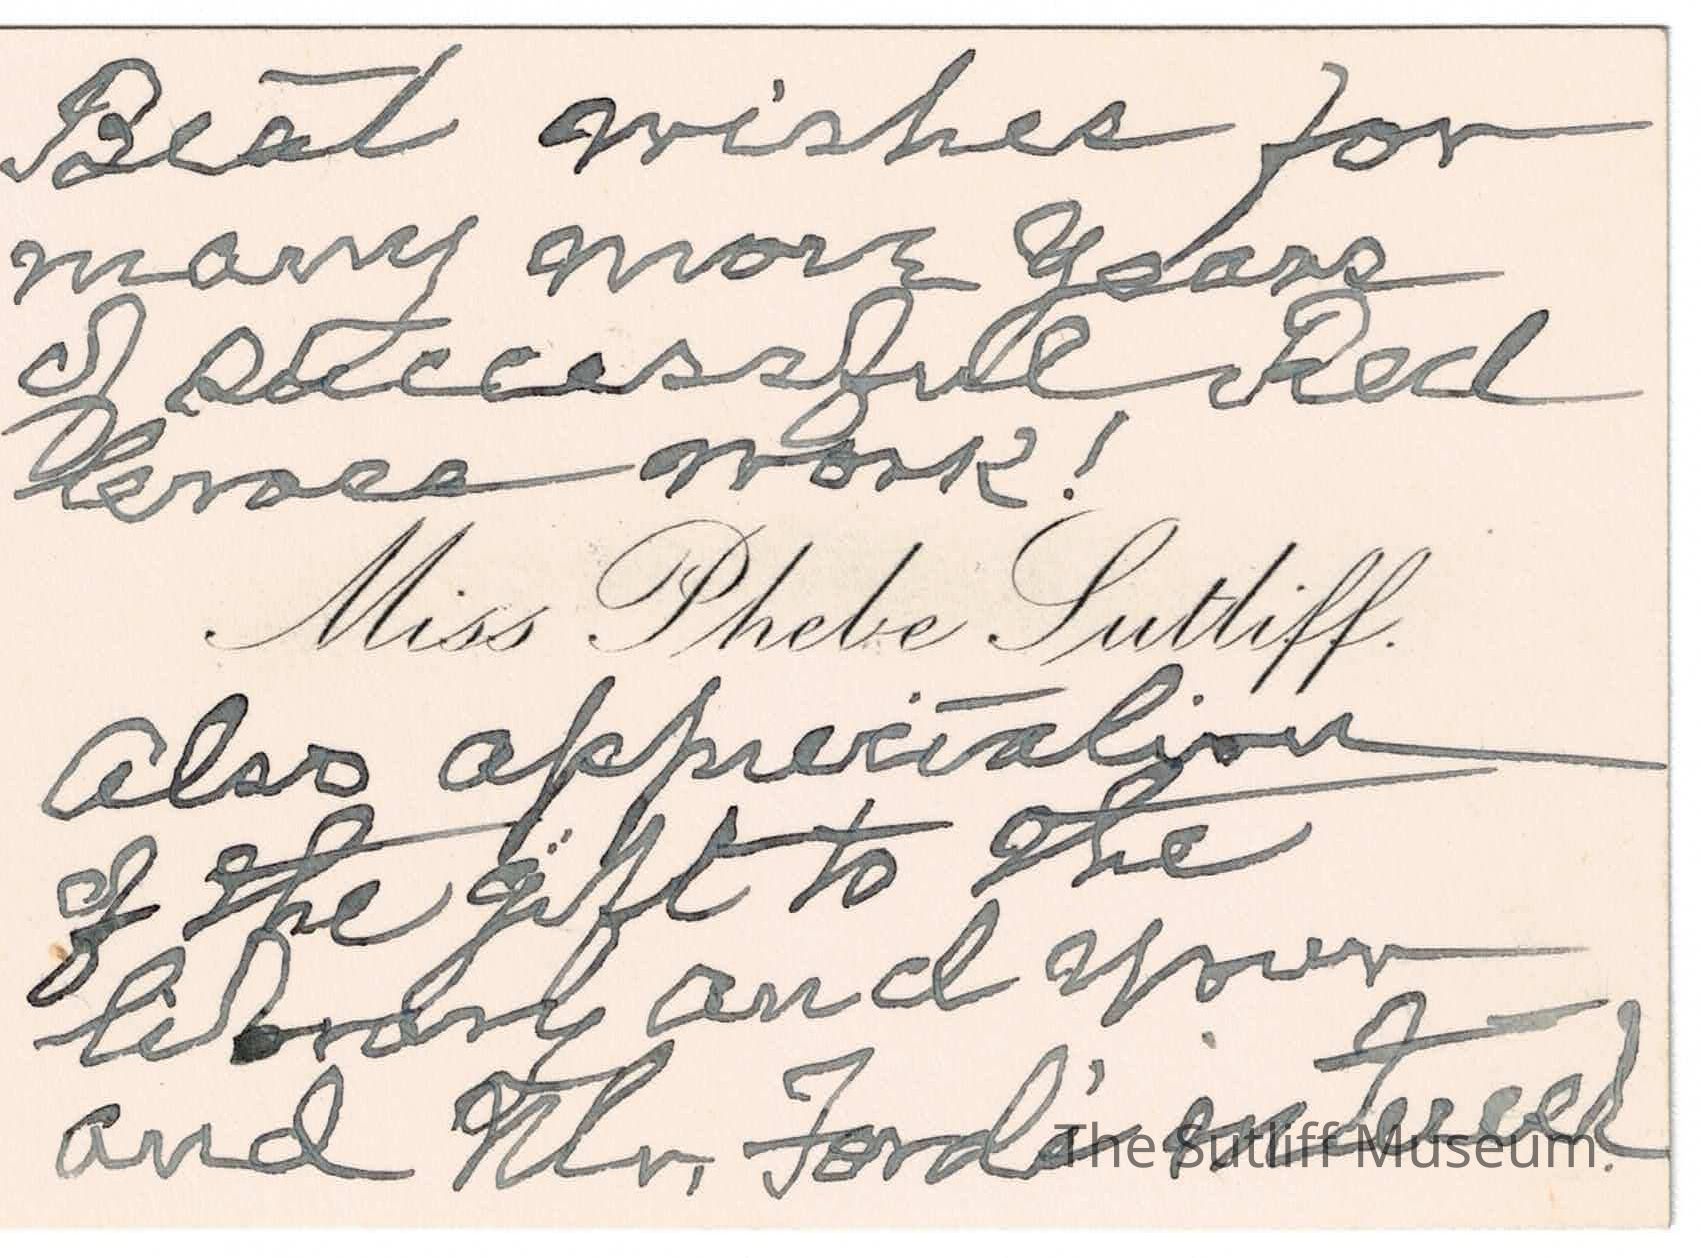 Best wishes for
many more years
of successful Red
Cross work!
Miss Phebe Sutliff.
Also appreciation
of the gift to the
library and your
and Mr. Ford's interest.
The Sutliff Museum